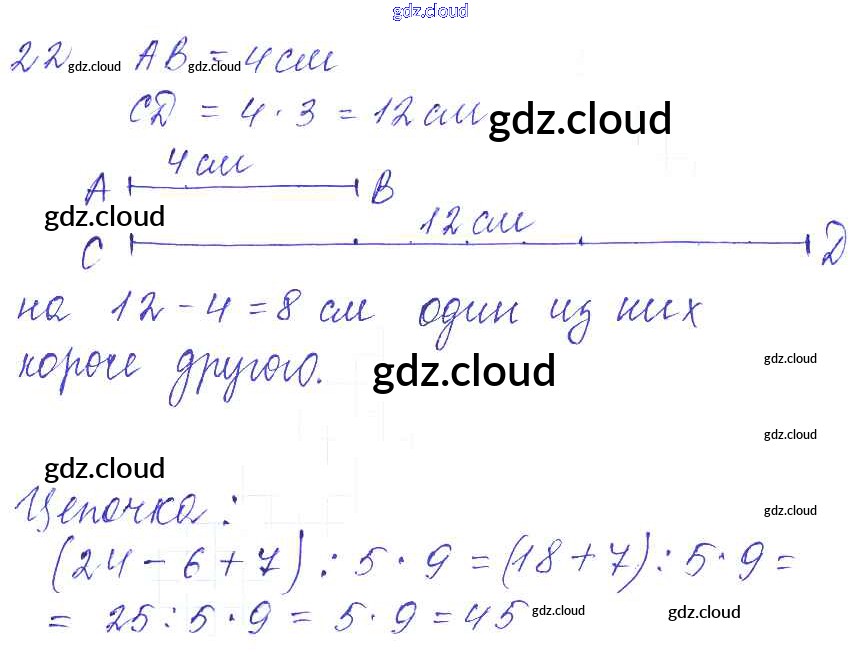 gdz.cloud
22 gdz.cloud AB gdz.cloud = 4 см
CD = 4 · 3 = 12 см gdz.cloud
4 см
A B
gdz.cloud
12 см
C D
на 12 - 4 = 8 см один из них
короче другого. gdz.cloud gdz.cloud
gdz.cloud
gdz.cloud
Цепочка: gdz.cloud
(24 - 6 + 7) : 5 · 9 = (18 + 7) : 5 · 9 =
= 25 : 5 · 9 = 5 · 9 = 45 gdz.cloud gdz.cloud